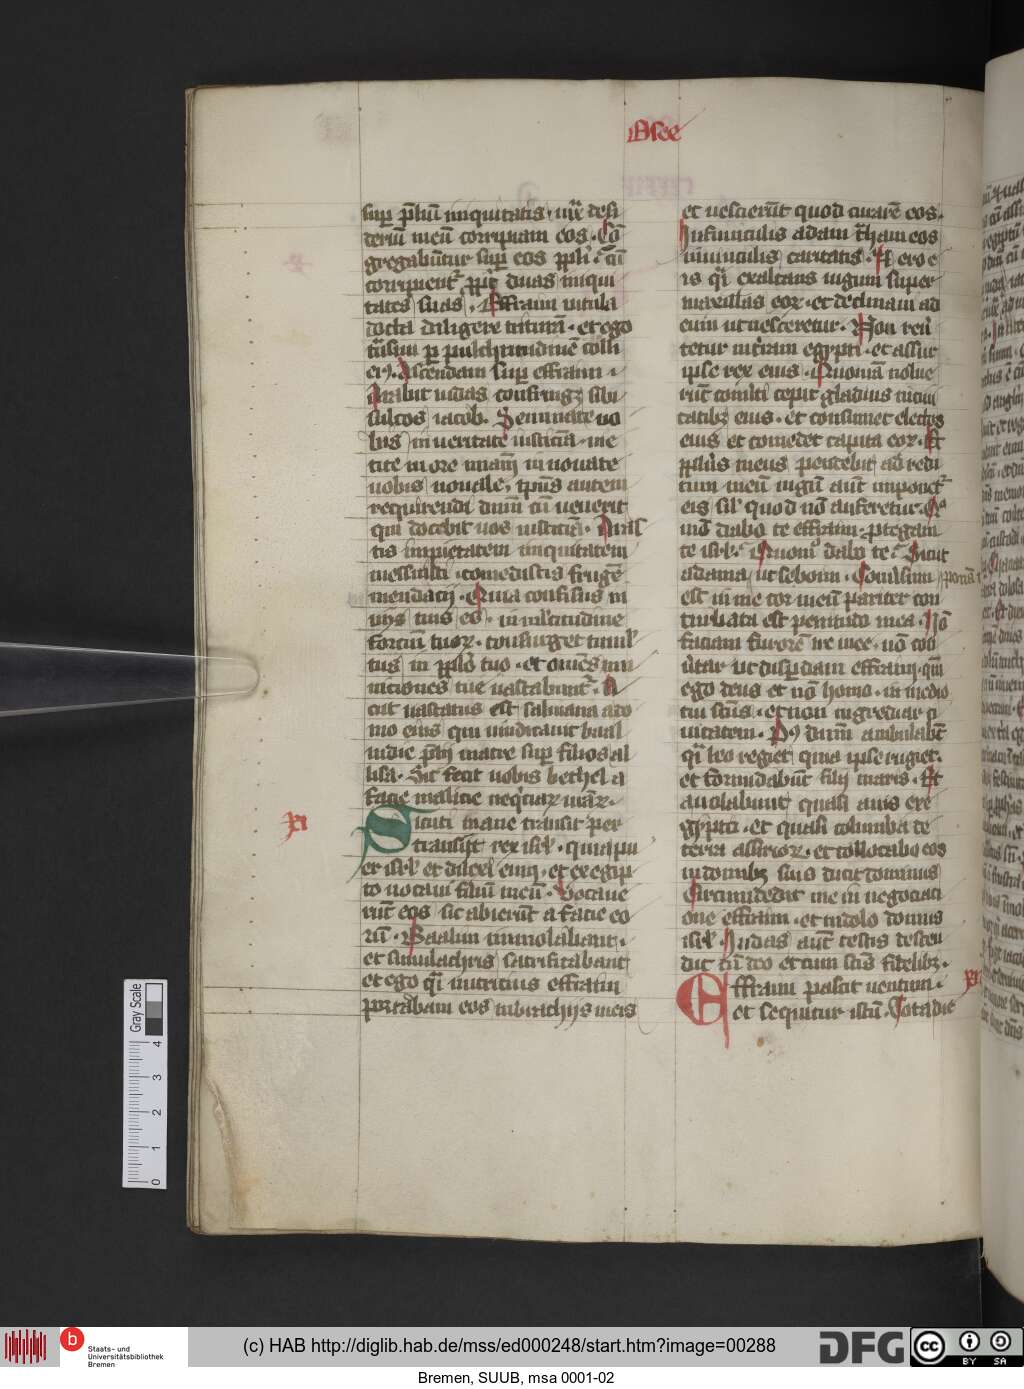 Osee
sup p̄liū iniquitatis · iux̄ desi
deriū meū corripiam eos · Cō
gregabūtur sup eos pp̄li · cū
corripient᷑ ꝓpt̄ duas iniqui
tates suas · Effraim uitula
docta diligere trituram̄ · et ego
tn̄siui ꝑ pulchritudinē colli
eiꝰ · Ascendam sup effraim ·
Arabit iudas confringꝫ sibi
sulcos iacob · Seminate uo
bis in ueritate iusticiā · me
tite in ore mīam̄ innouate
uobis nouale, tp̄us autem
requirendi dn̄m cū uenerit
qui docebit uos iusticiā · Aras
tis impietatem iniquitatem
messuisti · comedistis frugē
mendacij · Quia confisus in
uijs tuis es · in mĺtitudine
fortiū tuoꝝ · consurget tumul
tus in pp̄lo tuo · et om̄es mu
niciones tue uastabunt᷑ · Si
cut uastatus est salmana a do
mo eius qui iudicauit baal
in die p̄lij matre sup filios al
lisa · Sic fecit uobis bethel a
facie malicie neq̇ciaꝝ ūraꝝ ·
xi
Sicuti mane transit per
transijt rex isrl̄ · quia pu
er isrl̄ et dilexi eum · et ex egip
to uocaui filiū meū · Vocaue
rūt eos sic abierūt a facie eo
rū · Baalim immolabant ·
et simulachris sacrificabant
et ego qͥ nutricius effraim
portabam eos in brachijs meis
et nescierūt quod curarē eos ·
In funiculis adam t̄ham eos
in uinculis caritatis · Et ero e
is qͥ exaltans iugum super
maxillas eoꝝ · et declinaui ad
eum ut uesceretur · Non reū
tetur in t̄ram egypti · et assur
ipse rex eius · Quoniā nolue
rūt conũti cepit gladius in ciui
tatibꝫ eius · et consumet electos
eius et comedet capita eoꝝ · Et
pp̄lus meus pendebit ad redi
tum meū iugū aūt imponet᷑
eis sil̄ quod nō auferetur · Quo
mō dabo te effraim · ꝓtegam
te isrl̄ · Quomͦ dabo te · Sicut
adama, ut seboim · Conūsum ponā
est in me cor meū pariter con
turbata est penitudo mea · Nō
faciam furorē ire mee · nō con
ũtar ut disperdam effraim · qm̄
ego deus et nō homo · in medio
tui sc̄us · et non ingrediar ci
uitatem · Pꝰ dn̄m ambulabūt
qͥ leo rugiet quia ipse rugiet ·
et formidabūt filij maris · Et
auolabunt quasi auis ex e
gypto · et quasi columba de
terra assirioꝝ · et collocabo eos
in domibꝫ suis dicit dominus
Circumdedit me in negociaci
one effraim · et in dolo domus
isrl̄ · Iudas aūt testis descen
dit cū deo et cum sc̄is fidelibꝫ ·
xii
Effraim pascit uentum ·
et sequitur estū · Tota die
Gray Scale
4
3
2
1
0
b
Staats- und
Universitätsbibliothek
Bremen
(c) HAB http://diglib.hab.de/mss/ed000248/start.htm?image=00288
DFG
cc
BY SA
Bremen, SUUB, msa 0001-02